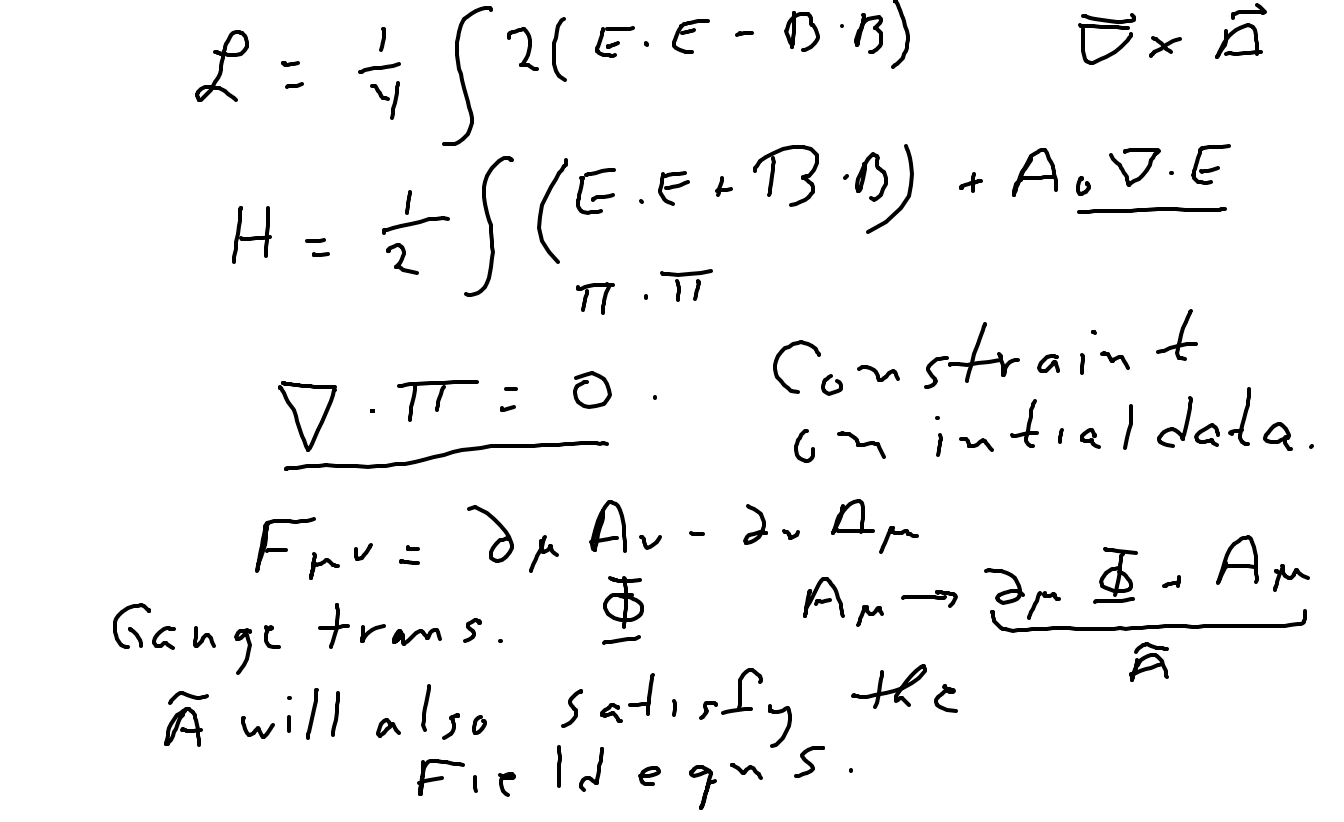 ℒ = 1/4 ∫ 2(E·E - B·B)   ∇̅ × A⃗
H = 1/2 ∫ (E·E + B·B) + A₀ ∇·E
π·π
∇·π = 0. Constraint
on intial data.
F_μν = ∂_μ A_ν - ∂_ν A_μ
Gauge trans. Φ   A_μ → ∂_μ Φ + A_μ
Ã
Ã will also satisfy the
Field eqns.